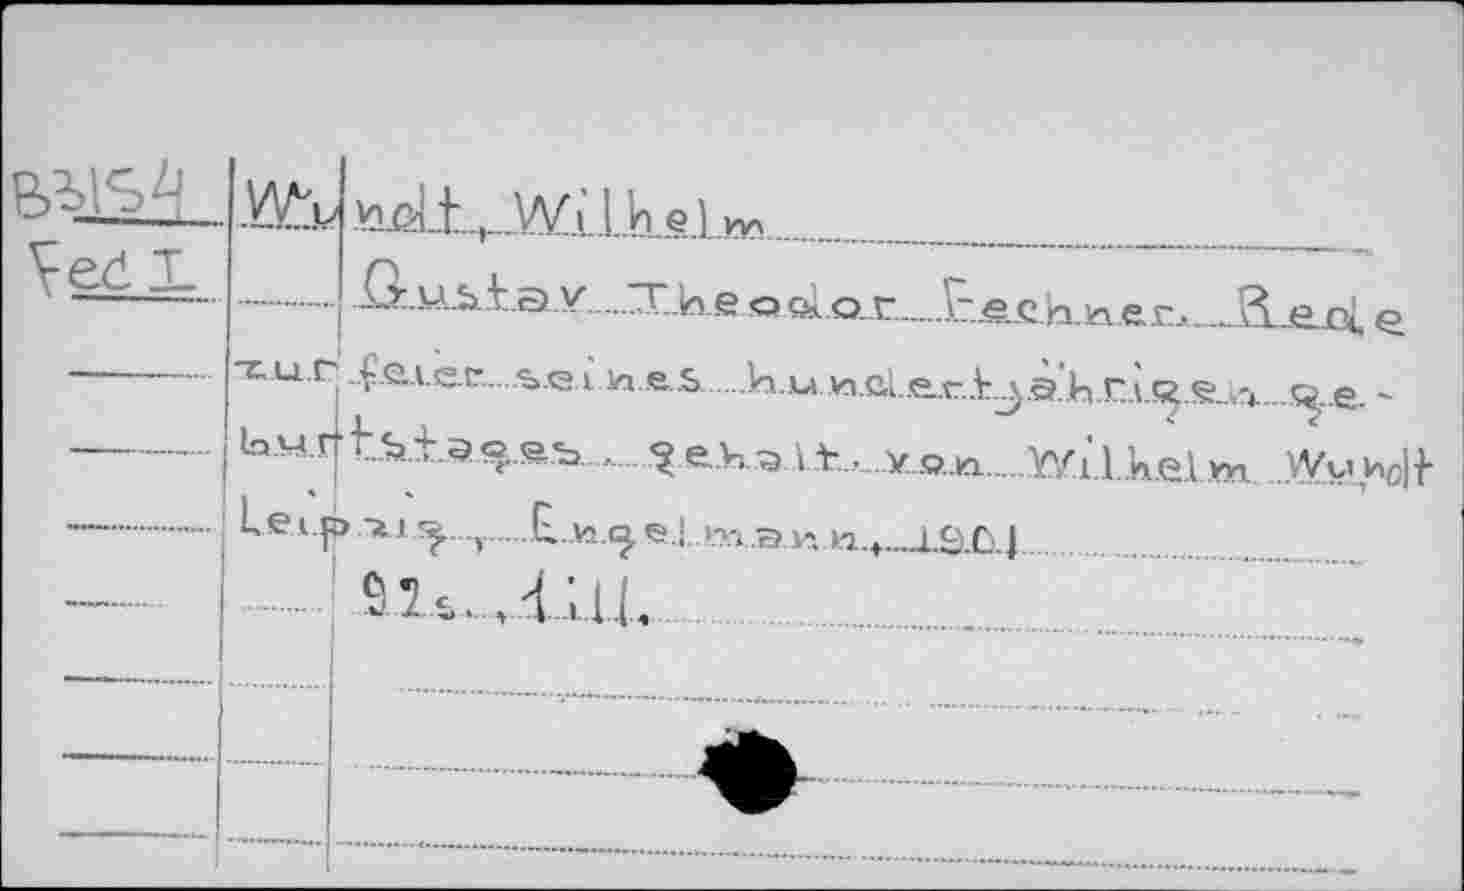 B3154 Wundt, Wilhelm
Fec1 Gustav Theodor Fechner. Rede
zur feier seines hundertjährigen ge-
burtstages. gehalt. von Wilhelm Wundt
Leipzig, Engelmann, 1901
92s., ill.